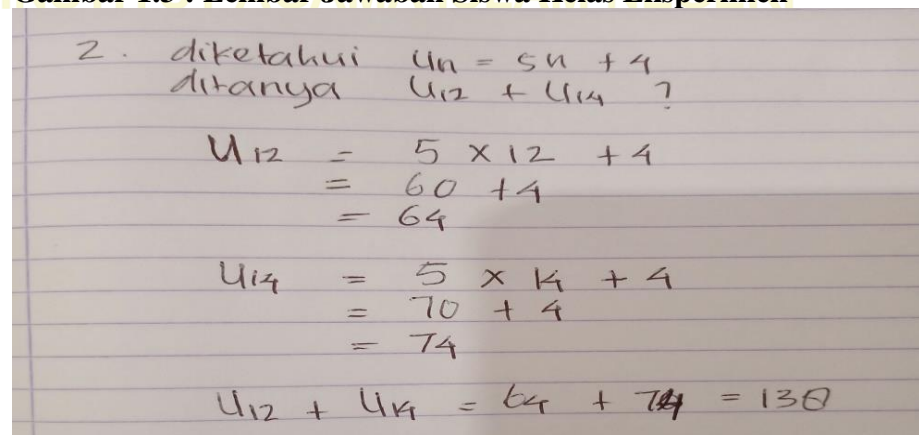 Gambar 1.3 : Lembar Jawaban Siswa Kelas Eksperimen
2. diketahui Un = 5n + 4
ditanya U12 + U14 ?
U12 = 5 x 12 + 4
= 60 + 4
= 64
U14 = 5 x 14 + 4
= 70 + 4
= 74
U12 + U14 = 64 + 74 = 138